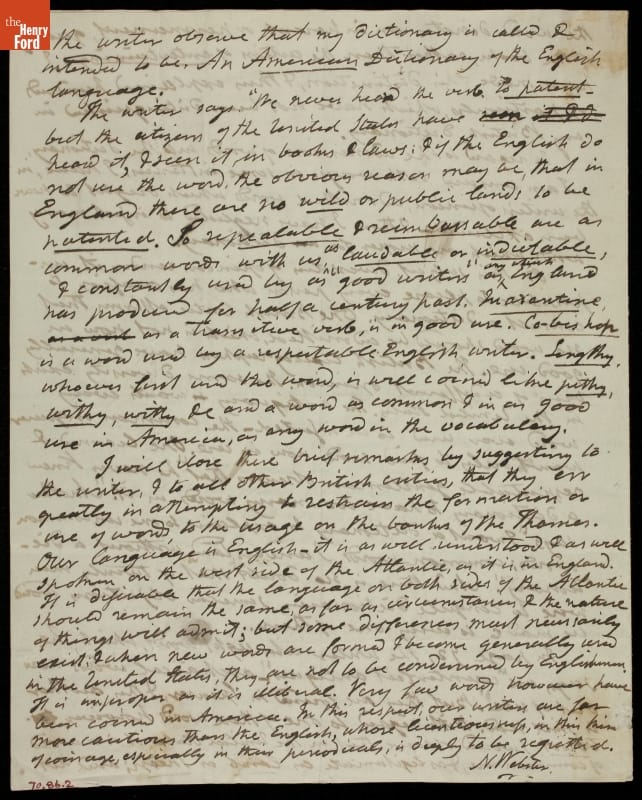 the Henry Ford
the writer observe that my dictionary is called &
intended to be, An American Dictionary of the English
language.
The writer says. "We never heard the verb to patent-
but the citizens of the United States have seen it & I
heard it, & seen it, in books & laws; & if the English do
not use the word, the obvious reason may be, that in
England there are no wild or public lands to be
patented. So repealable & reimbursable are as
common words with us, as laudable or indictable,
& constantly used by as "good writers" as any which England
has produced for half a century past. Quarantine,
as a transitive verb, is in good use. Co-bishop
is a word used by a respectable English writer. Lengthy,
whoever first used the word, is well coined like pithy,
withy, witty &c and a word as common & in as good
use in America, as any word in the vocabulary.
I will close these brief remarks by suggesting to
the writer, & to all other British critics, that they err
greatly in attempting to restrain the formation or
use of words to the usage on the banks of the Thames.
Our Language is English - it is as well understood & as well
spoken, on the west side of the Atlantic, as it is in England.
It is desirable that the language on both sides of the Atlantic
should remain the same, as far as circumstances & the nature
of things will admit; but some differences must necessarily
exist; & when new words are formed & become generally used
in the United States, they are not to be condemned by Englishmen.
It is improper as it is illiberal. Very few words however have
been coined in America. In this respect, our writers are far
more cautious than the English, whose licentiousness, in this kind
of coinage, especially in their periodicals, is deeply to be regretted.
N. Webster.
70.86.2